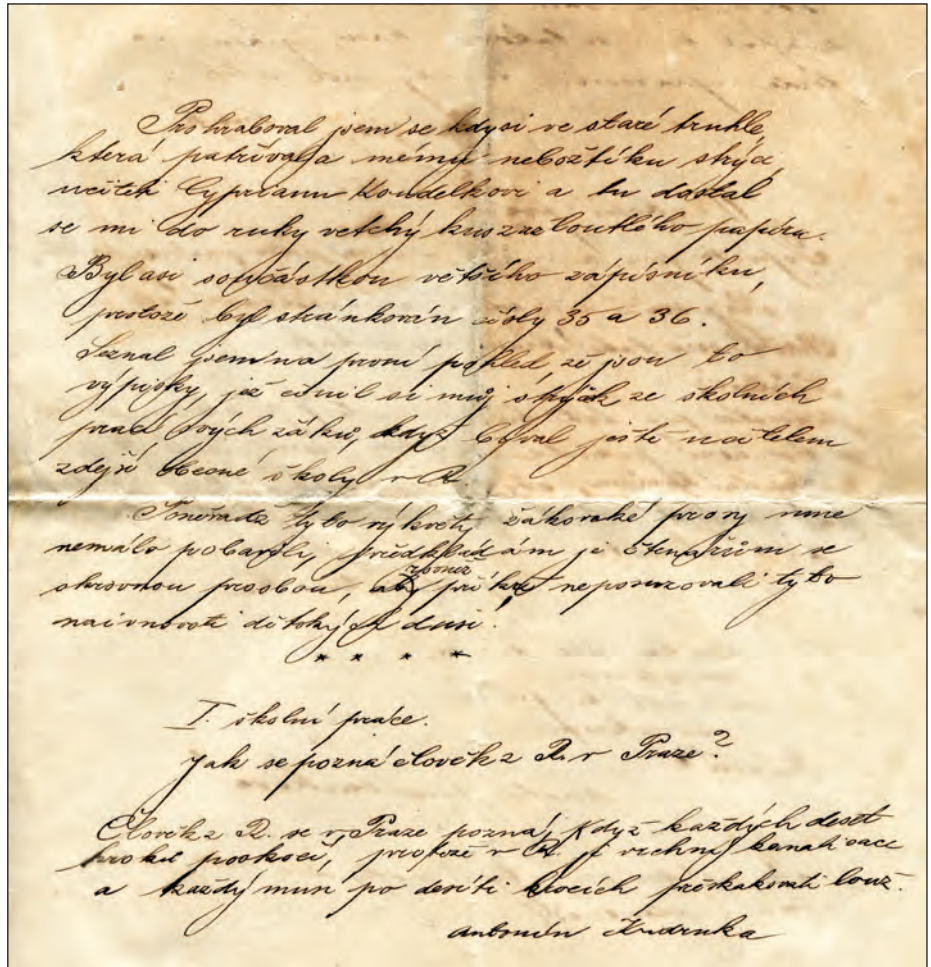 Prohraboval jsem se kdysi ve staré truhle,
která patřívala mému nebožtíku strýci,
učiteli Cyprianu Koudelkovi a tu dostal
se mi do ruky vetchý kus zežloutlého papíru.
Byl asi součástkou většího zápisníku,
protože byl stránkován čísly 35 a 36.
Seznal jsem na první pohled, že jsou to
výpisky, jež činil si můj strýček ze školních
prací svých žáků, když býval ještě učitelem
zdejší obecné školy v R.
Poněvadž tyto výkvěty žákovské prosy mne
nemálo pobavily, předkládám je čtenářům se
skrovnou prosbou, aby rovněž příkře neposuzovali tyto
naivnosti dětských duší!
* * * *
I. školní práce.
Jak se pozná člověk z R. v Praze?
Člověk z R. se v Praze pozná, když každých deset
kroků poskočí, protože v R. je vrchní kanalisace
a každý musí po desíti krocích přeskakovati louž.
Antonín